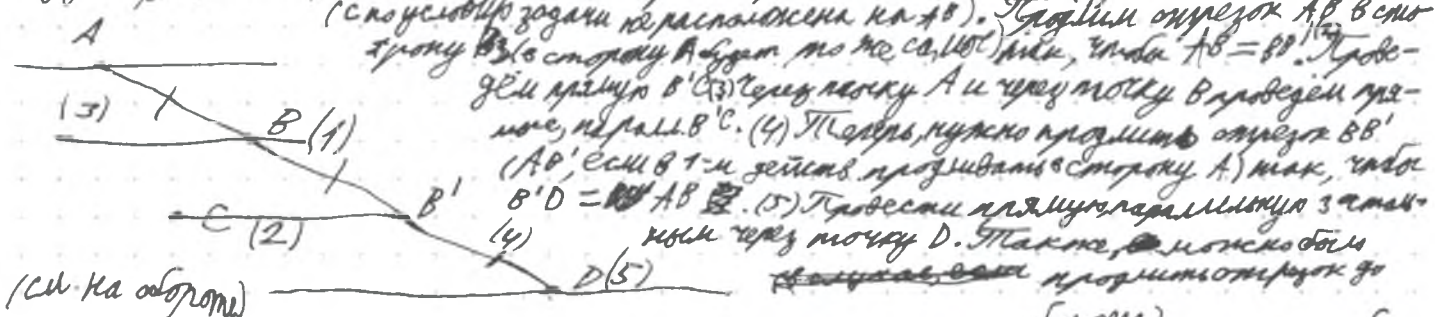 (С по условию задачи не расположена на AB). Продлим отрезок AB в сто-
рону B (в сторону A будет то же самое) так, чтобы AB = BB'. Прове-
дём прямую B'C (3) Через точку A и через точку B проведём пря-
мые, паралл. B'C. (4) Теперь, нужно продлить отрезок BB'
(AB', если в 1-м действ. продлевать в сторону A) так, чтобы
B'D = AB. (5) Провести прямую параллельную
через точку D. Также, можно было
продлить отрезок до
A
(3)
B (1)
C (2)
B'
(4)
D (5)
(см. на обороте)